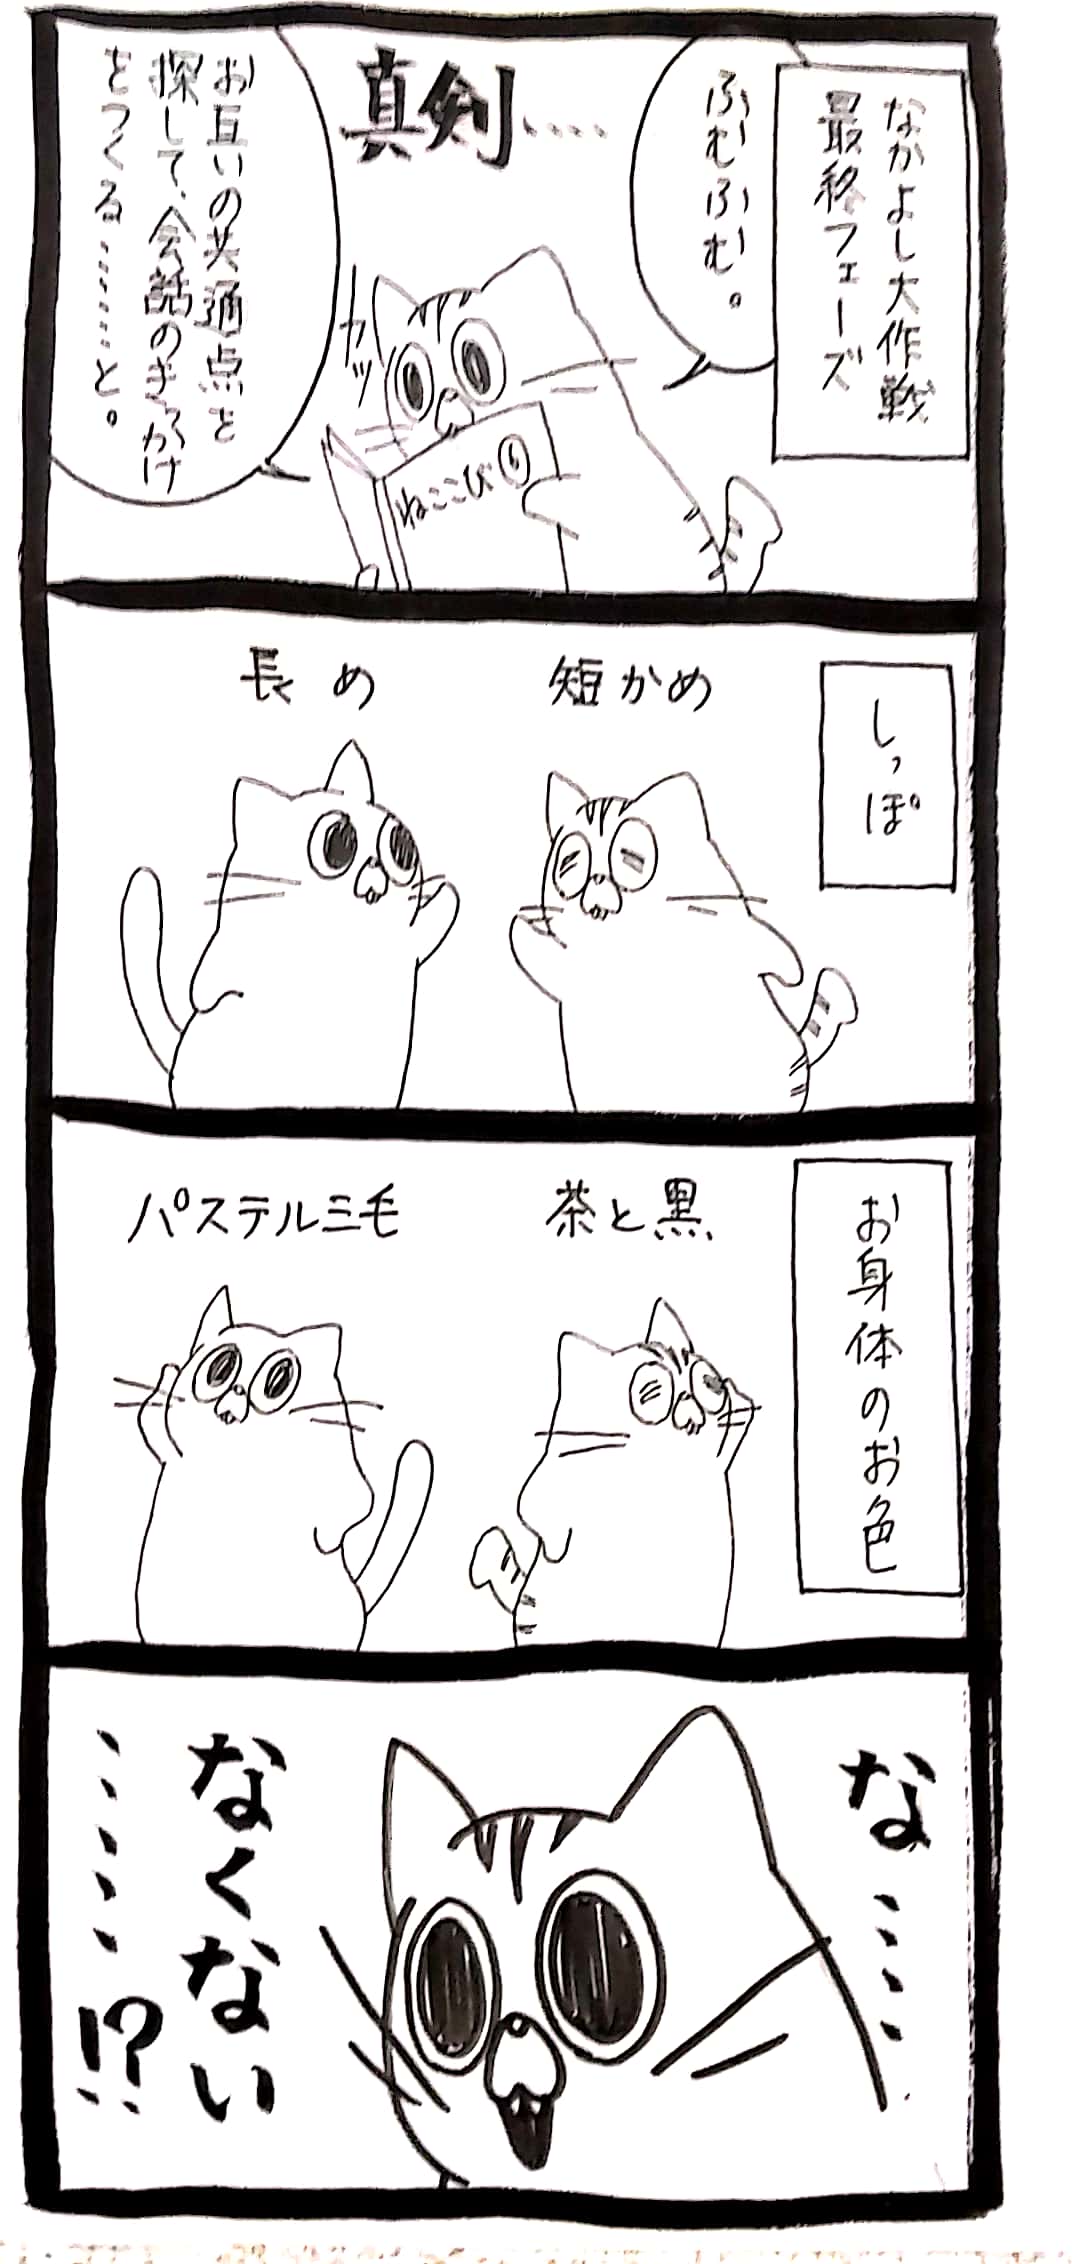 なかよし大作戦
最終フェーズ
ふむふむ。
真剣‥‥
カッ
ねここび①
お互いの共通点を
探して、会話のきっかけ
をつくる……と。
しっぽ
短かめ
長め
お身体のお色
茶と黒
パステル三毛
な……
なくない
……!?